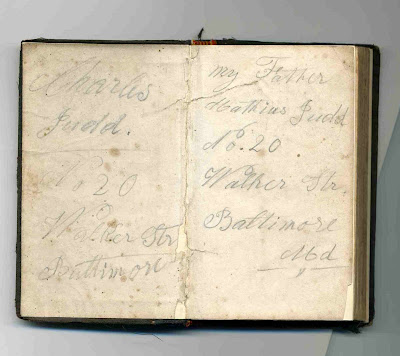 Charles
Judd.
No 20
Walker Str
Baltimore
my Father
Mathius Judd
No. 20
Walker Str.
Baltimore
Md